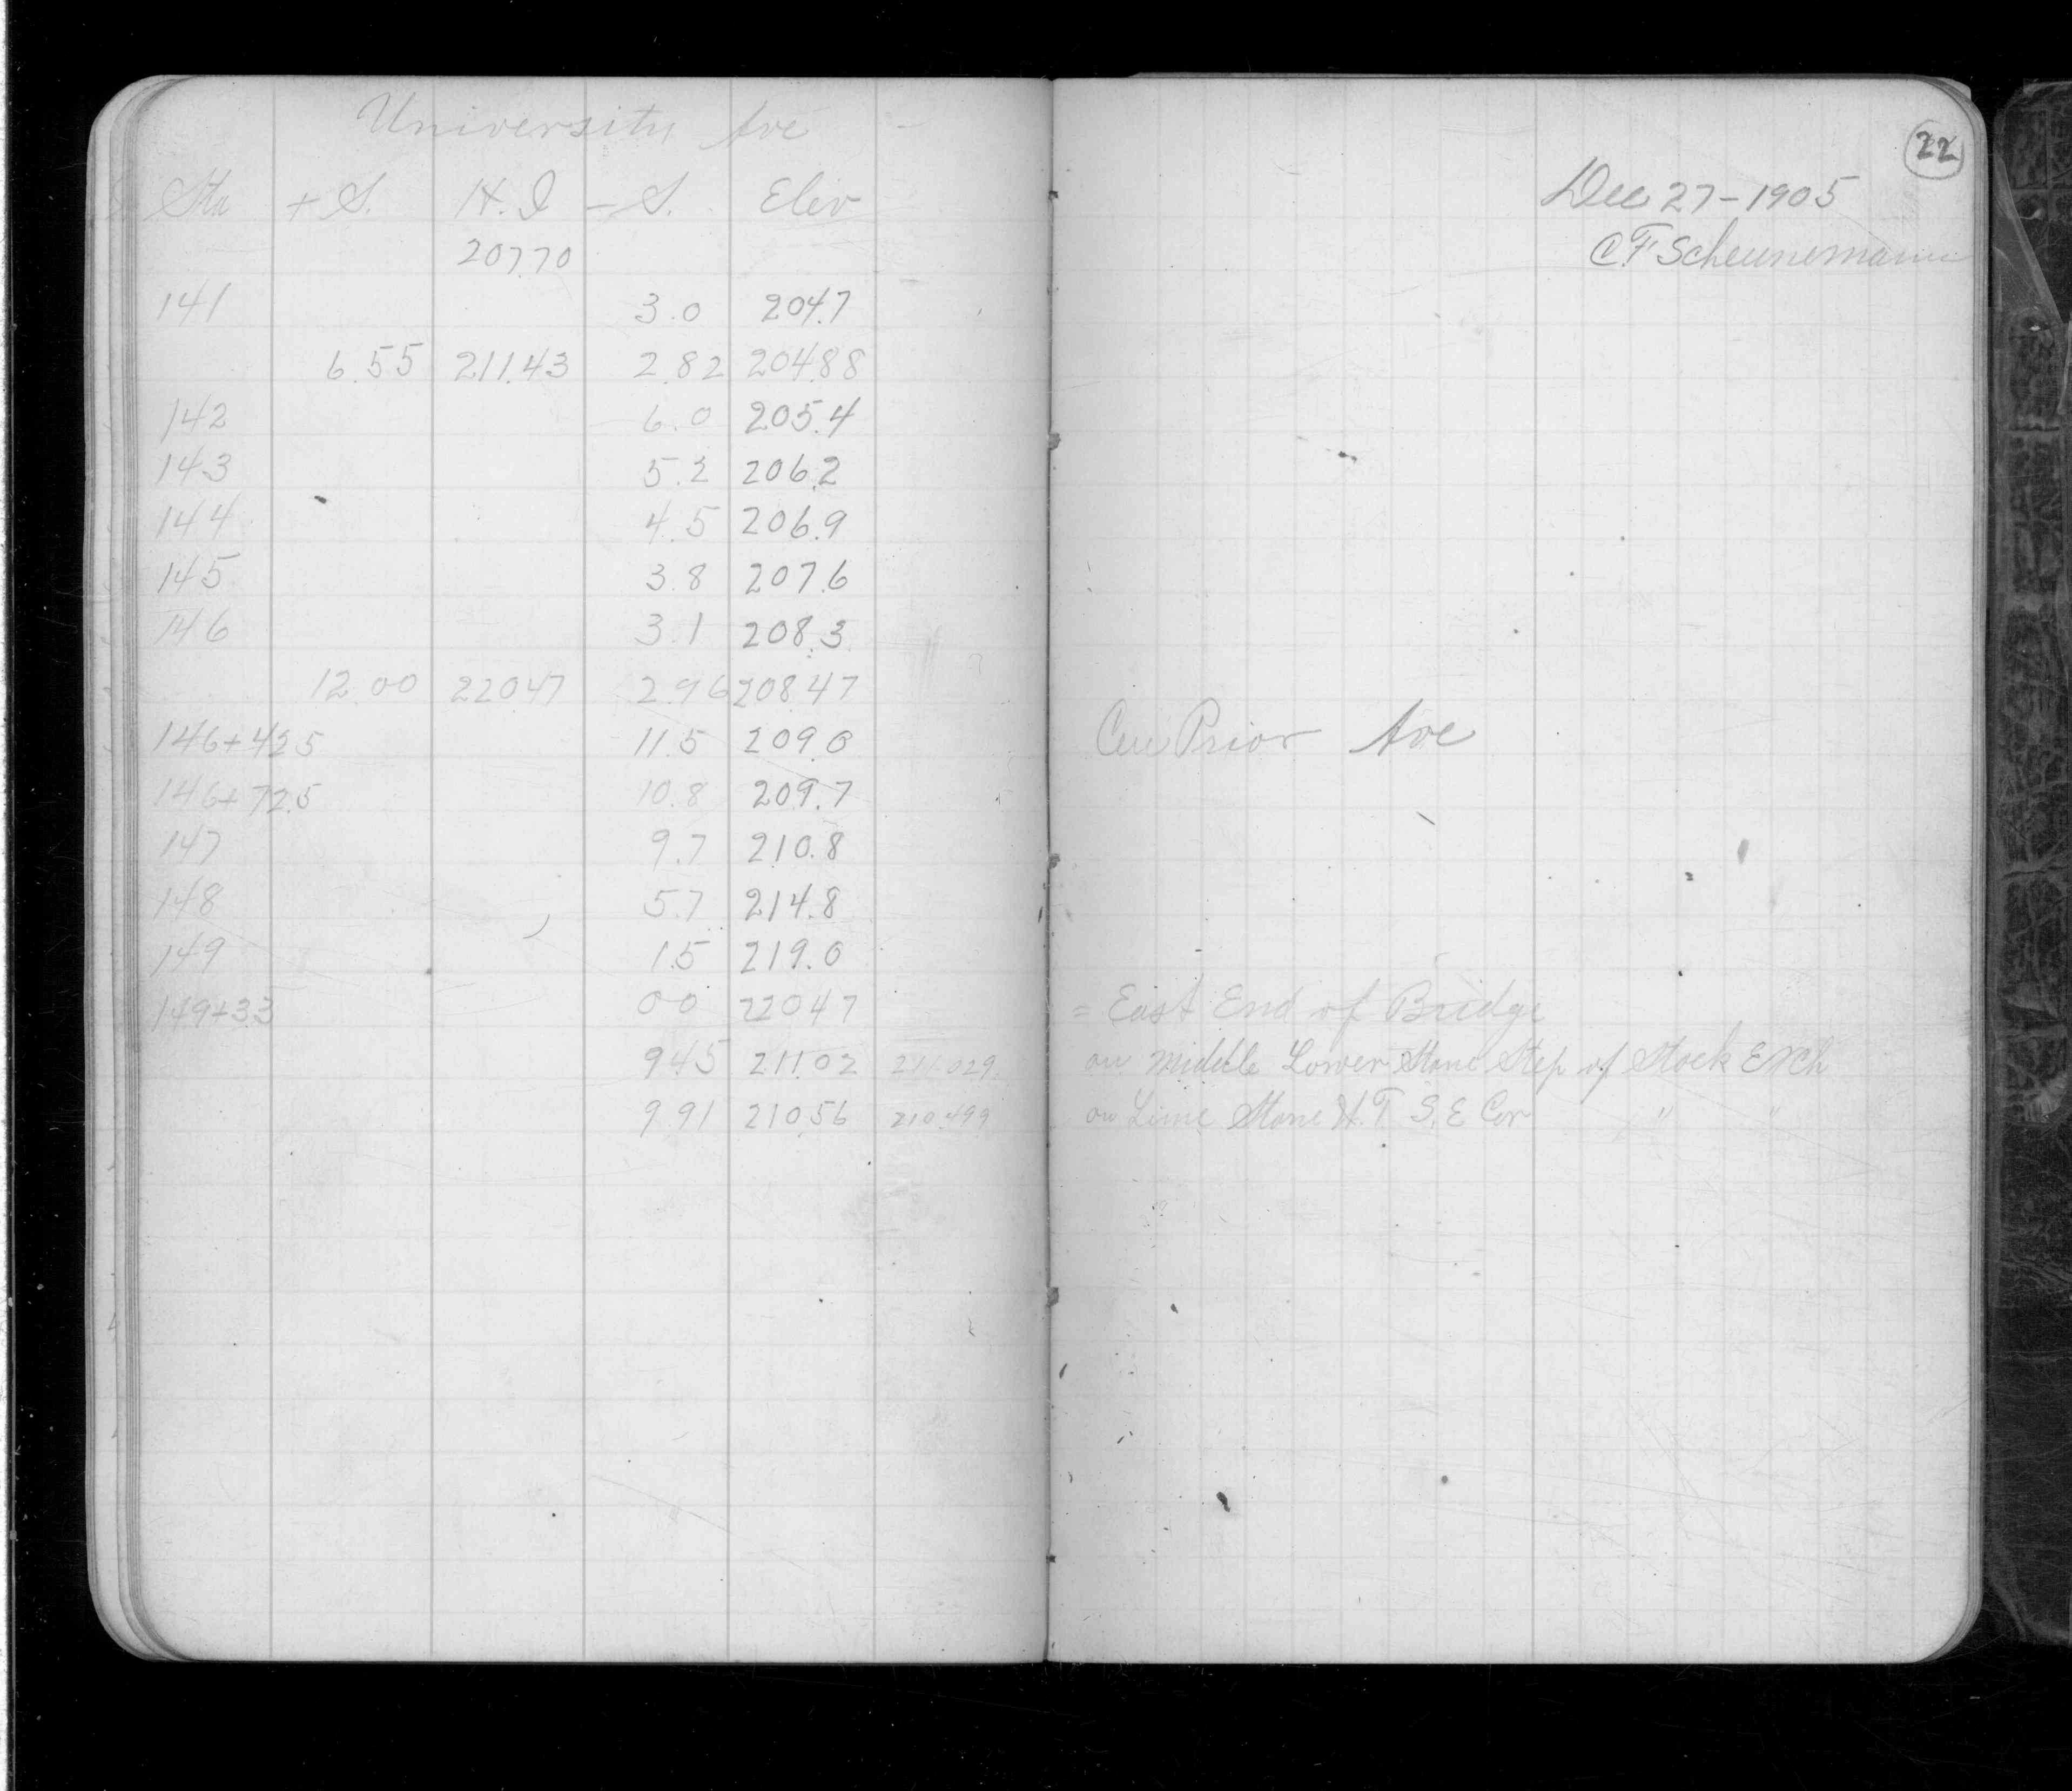 University Ave
Sta + S. H. I - S. Elev
207.70
141 3.0 204.7
6.55 211.43 2.82 204.88
142 6.0 205.4
143 5.2 206.2
144 4.5 206.9
145 3.8 207.6
146 3.1 208.3
12.00 220.47 2.96 208.47
146+42.5 11.5 209.0
146+72.5 10.8 209.7
147 9.7 210.8
148 5.7 214.8
149 1.5 219.0
149+33 00 220.47
9.45 211.02 211.029
9.91 210.56 210.499
22
Dec 27-1905
C.F. Scheunemann
Cen Prior Ave
= East End of Bridge
on Middle Lower Stone Step of Stock Exch
on Lime Stone H.T S.E Cor " "